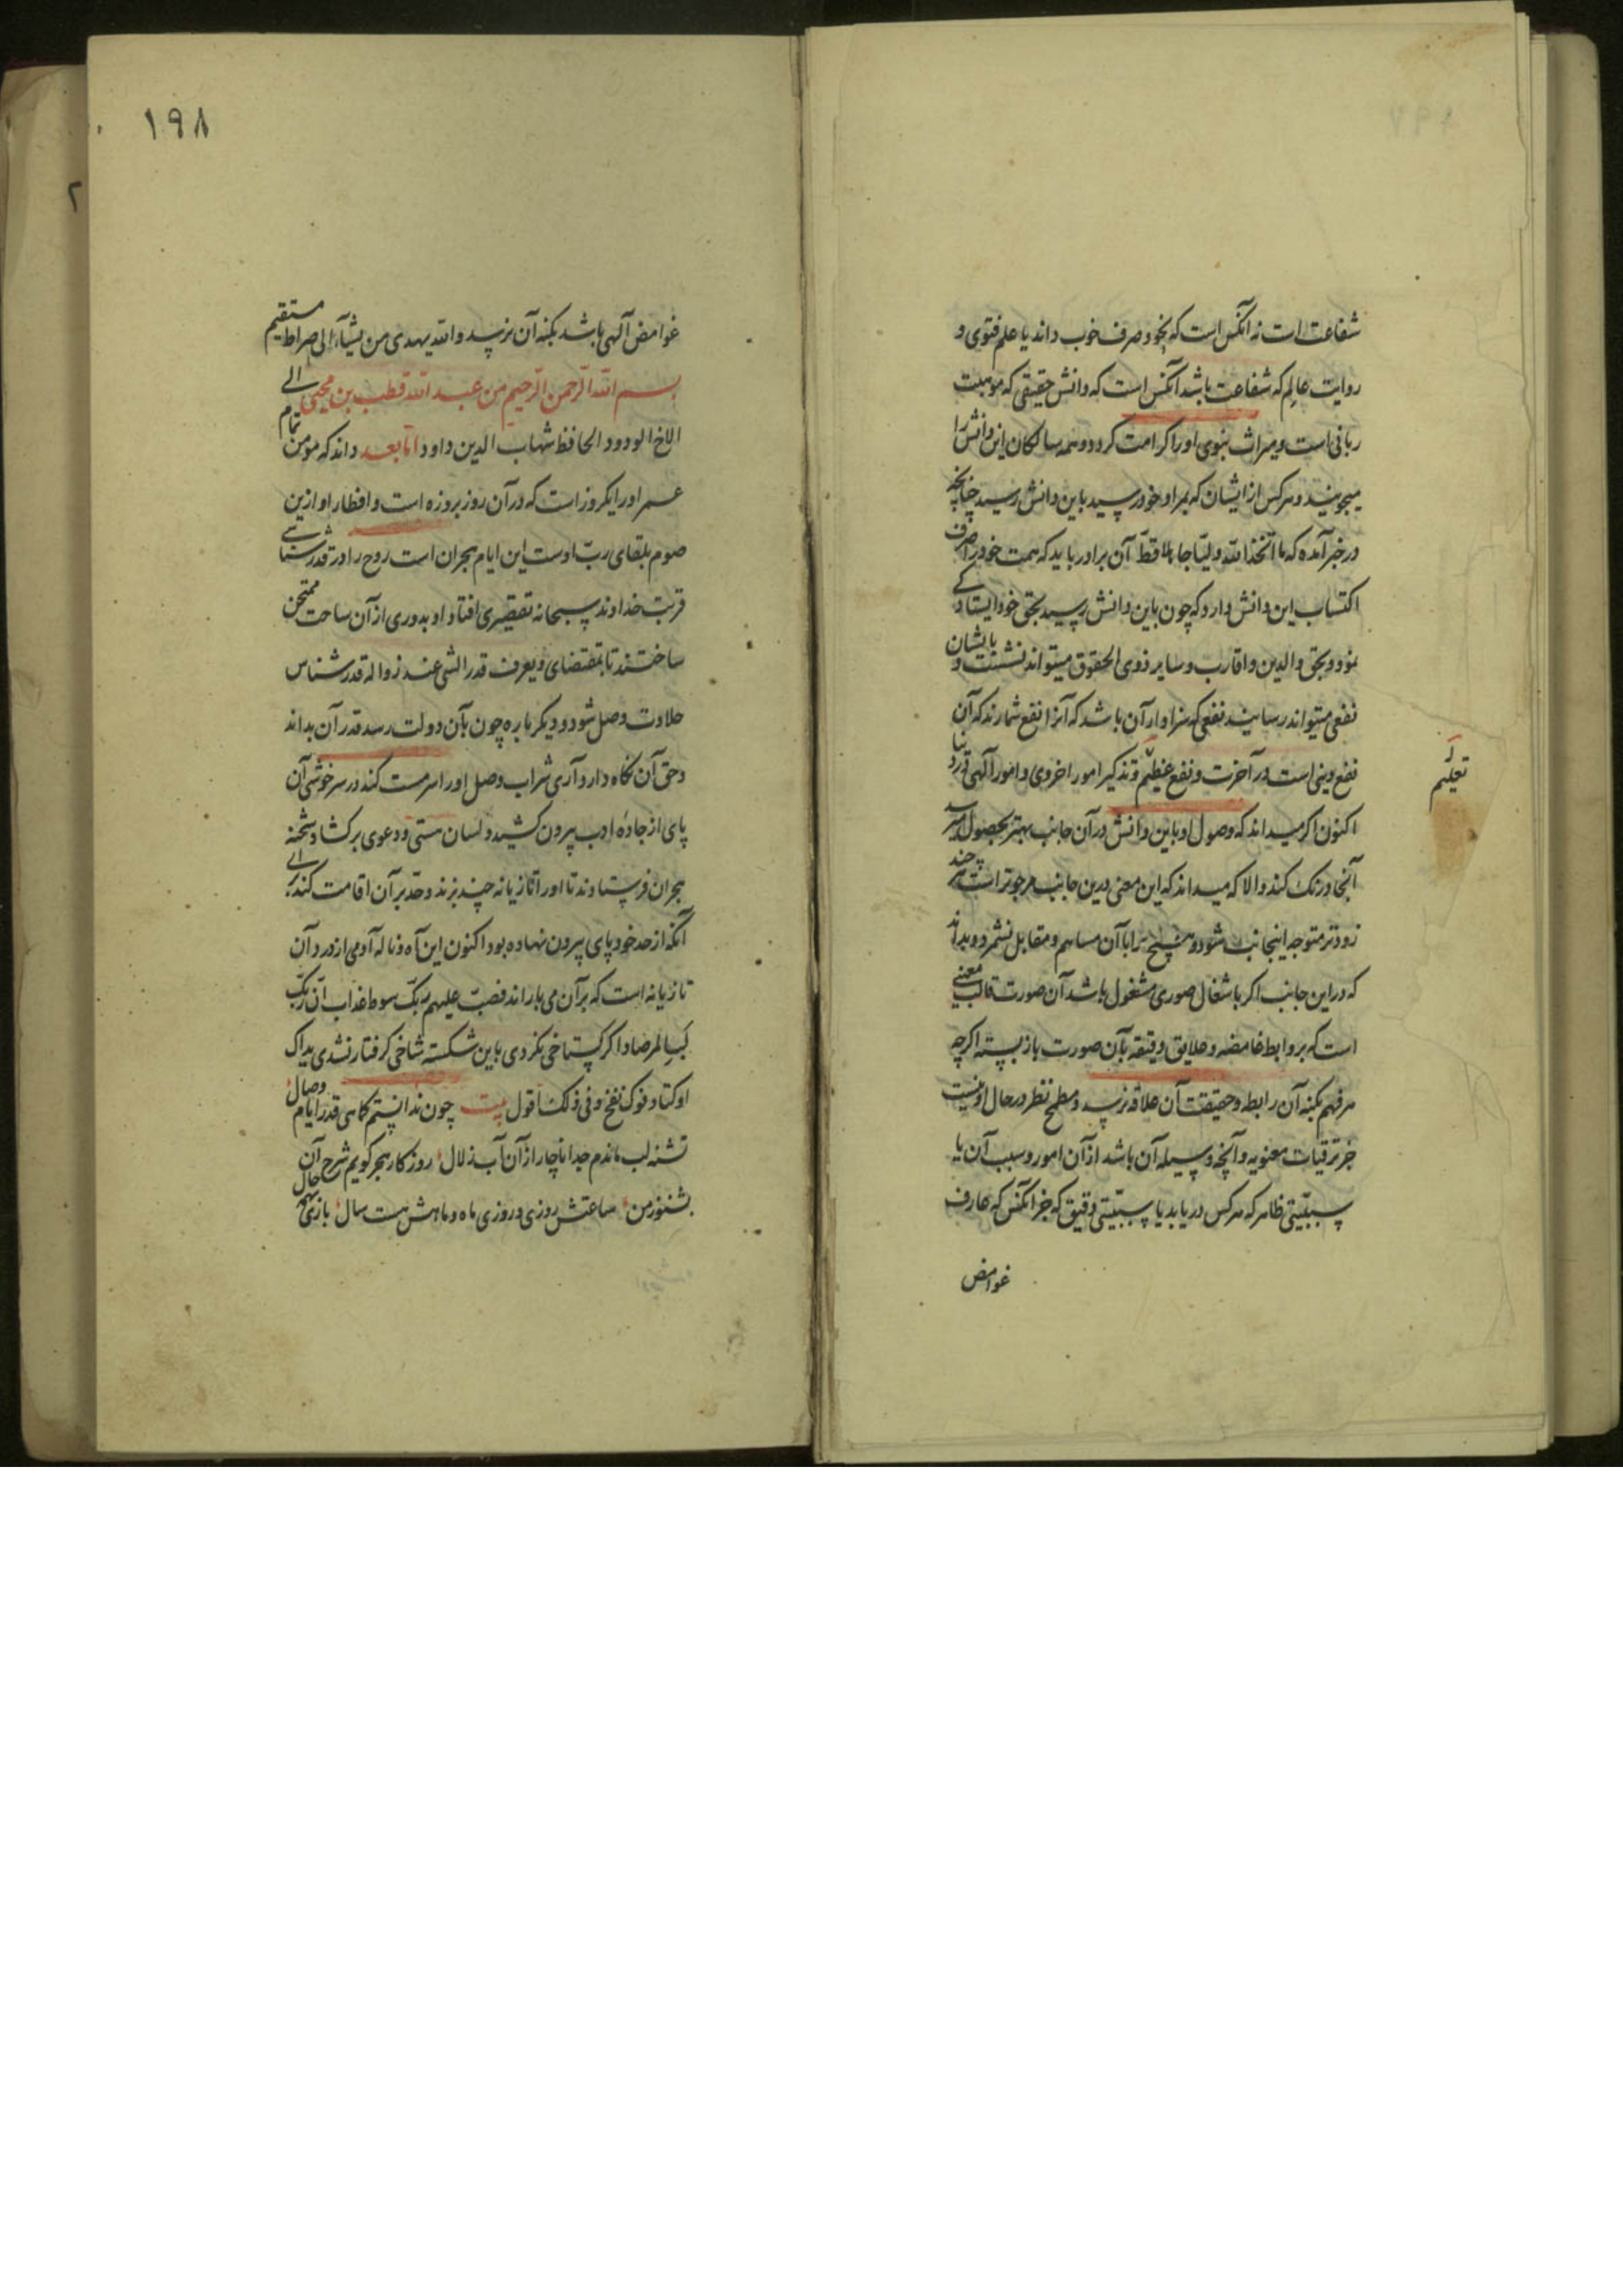 شفاعت است نه آنکس است که نحو و صرف خوب داند یا علم فتوی و
روایت عالم که شفاعت باشد آنکس است که دانش حقیقی که موهبت
ربانی است و میراث نبوی او را کرامت کردد و همه سالکان این دانش را
میجویند و هر کس از ایشان که بمراد خود رسید باین دانش رسید چنانچه
در خبر آمده که ما اتخذ الله ولیا جاهلا قط آن برادر باید که همت خود را صرف
اکتساب این دانش دارد که چون باین دانش رسید بحق خود ایستادکی
نمود و بحق والدین و اقارب و سایر ذوی الحقوق میتواند نشست و بایشان
نفعی میتواند رسانید نفعی که سزاوار آن باشد که آنرا نفع شمارند که آن
نفع دینی است در آخرت و نفع عظیم و تذکیر امور اخروی و امور آلهی در دنیا
تعلیم
اکنون اکر میداند که وصول او باین دانش در آن جانب بهتر بحصول میرسد
آنجا درنک کند والا که میداند که این معنی درین جانب مرجوتر است هر چند
زودتر متوجه اینجانب شود و هیچ را با آن مساهم و مقابل نشمرد و بداند
که در این جانب اکر باشغال صوری مشغول باشد آن صورت قالب معنی
است که بروابط غامضه و علایق دقیقه بآن صورت باز بسته اکرچه
هر فهم بکنه آن رابطه و حقیقت آن علاقه نرسد و مطمح نظر در حال او نیست
جز ترقیات معنویه و آنچه وسیله آن باشد از آن امور و سبب آن یا
سببیتی ظاهر که هر کس دریابد یا سببیتی دقیق که جز آنکس که عارف
غوامض
۱۹۸
غوامض آلهی باشد بکنه آن نرسد والله یهدی من یشآء الی صراط مستقیم
بسم الله الرحمن الرحیم من عبد الله قطب بن محیی الی
الاخ الودود الحافظ شهاب الدین داود اما بعد داند که مومن تمام
عمر او را یکروز است که در آن روز بروزه است و افطار او ازین
صوم بلقای رب اوست این ایام هجران است روح را در قدرشناسی
قربت خداوند سبحانه تقصیری افتاد او بدوری از آن ساحت ممتحن
ساختند تا بمقتضای و یعرف قدر الشی عند زواله قدرشناس
حلاوت وصل شود و دیکر باره چون بآن دولت رسد قدر آن بداند
و حق آن نکاه دارد آری شراب وصل او را سرمست کند در سرخوشی آن
پای از جاده ادب بیرون کشید و لسان مستی و دعوی برکشاد شحنه
هجران فرستادند تا او را تازیانه چند بزند و حد بر آن اقامت کند برای
آنکه از حد خود پای بیرون نهاده بود اکنون این آه و ناله آدمی از درد آن
تازیانه است که بر آن می باراند فصب علیهم ربک سوط عذاب ان ربک
لبالمرصاد اکر کستاخی نکردی باین شکسته شاخی کرفتار نشدی یداک
اوکتا و فوک نفخ و فی ذلک اقول بیت چون ندانستم کاهی قدر ایام وصال
تشنه لب ماندم جدا ناچار از آن آب زلال روزکار هجر کویم شرح آن حال
بشنو ز من ساعتش روزی و روزی ماه و ماهش هست سال